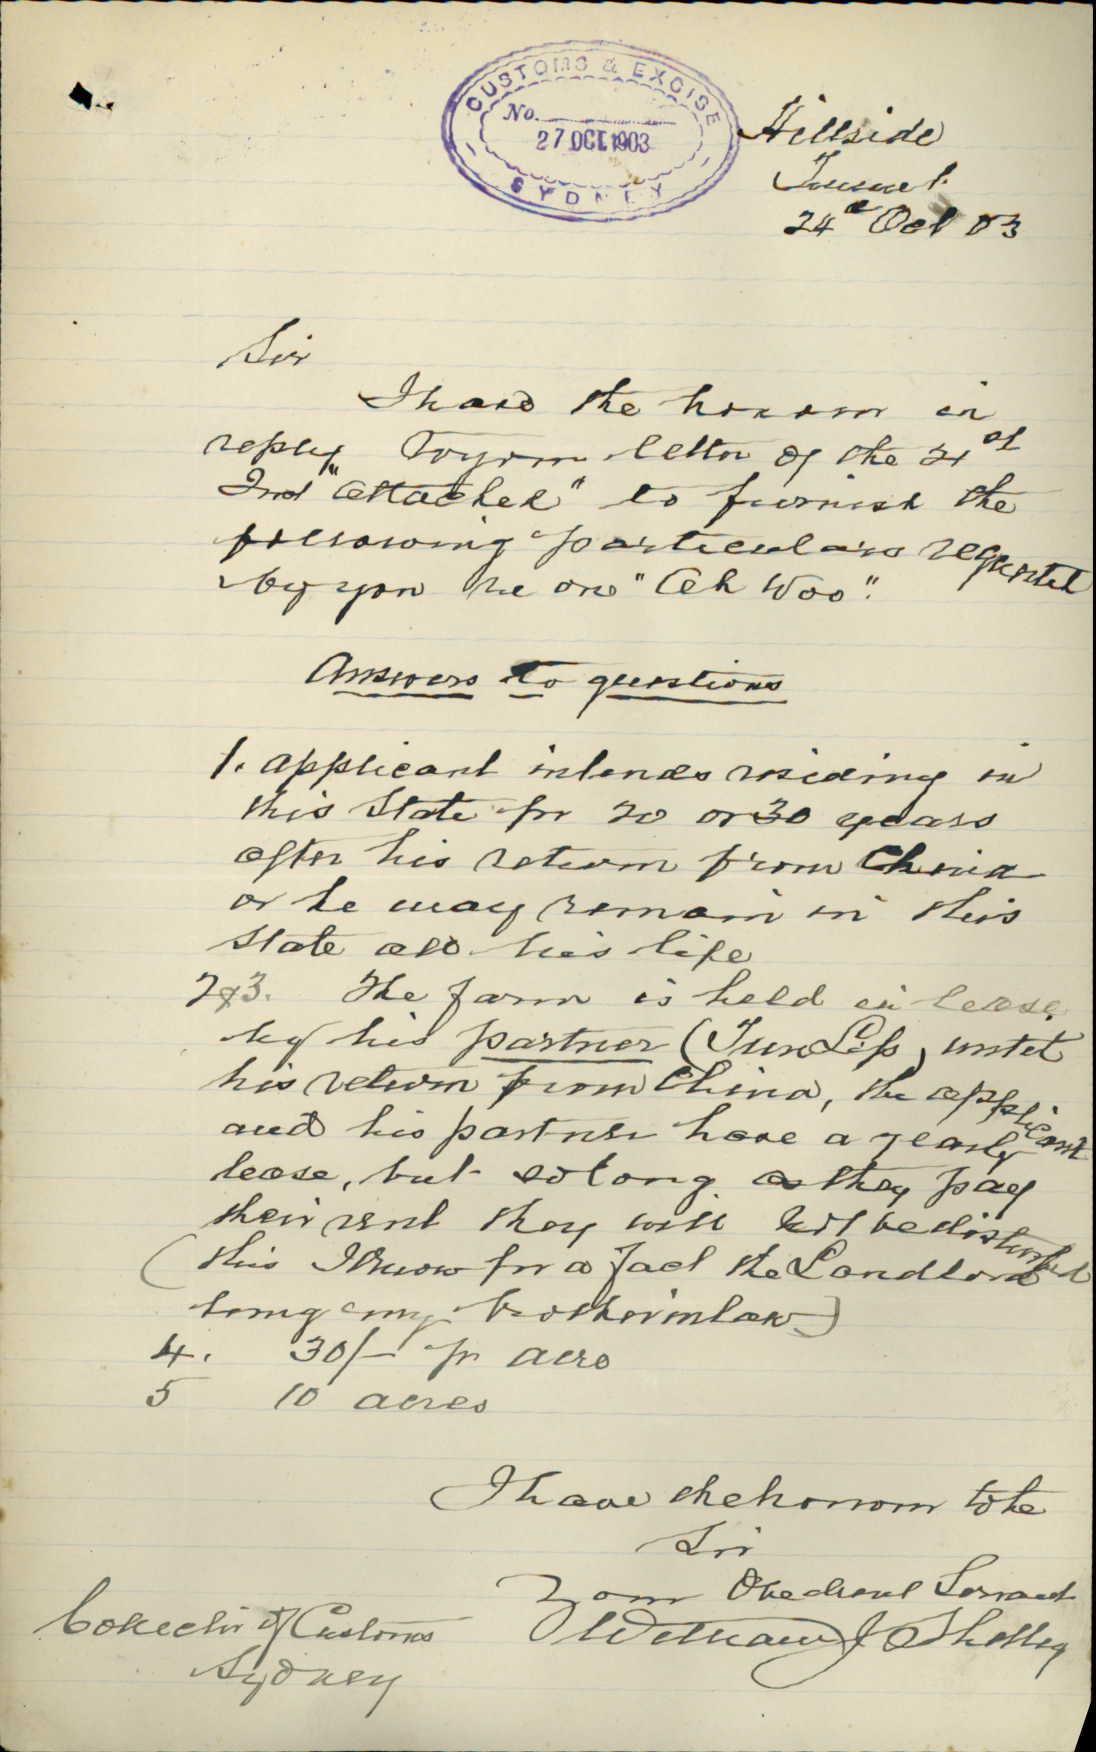 CUSTOMS & EXCISE
No.
27 OCT 1903
SYDNEY
Hillside
Tumut
24th Oct 03
Sir
I have the honour in
reply to your letter of the 21st
Inst "attached" to furnish the
following particulars requested
by you re one "Ah Woo".
Answers to questions
1. applicant intends residing in
this State for 20 or 30 years
after his return from China
or he may remain in this
State all his life
2 & 3. The farm is held in lease
by his partner (Tun Lip) until
his return from China, the applicant
and his partner have a yearly
lease, but so long as they pay
their rent they will not be disturbed
(this I know for a fact the Landlord
being my brother in law)
4. 30/- pr acre
5 10 acres
I have the honour to be
Sir
Your Obedient Servant
William J Shelley
Collector of Customs
Sydney